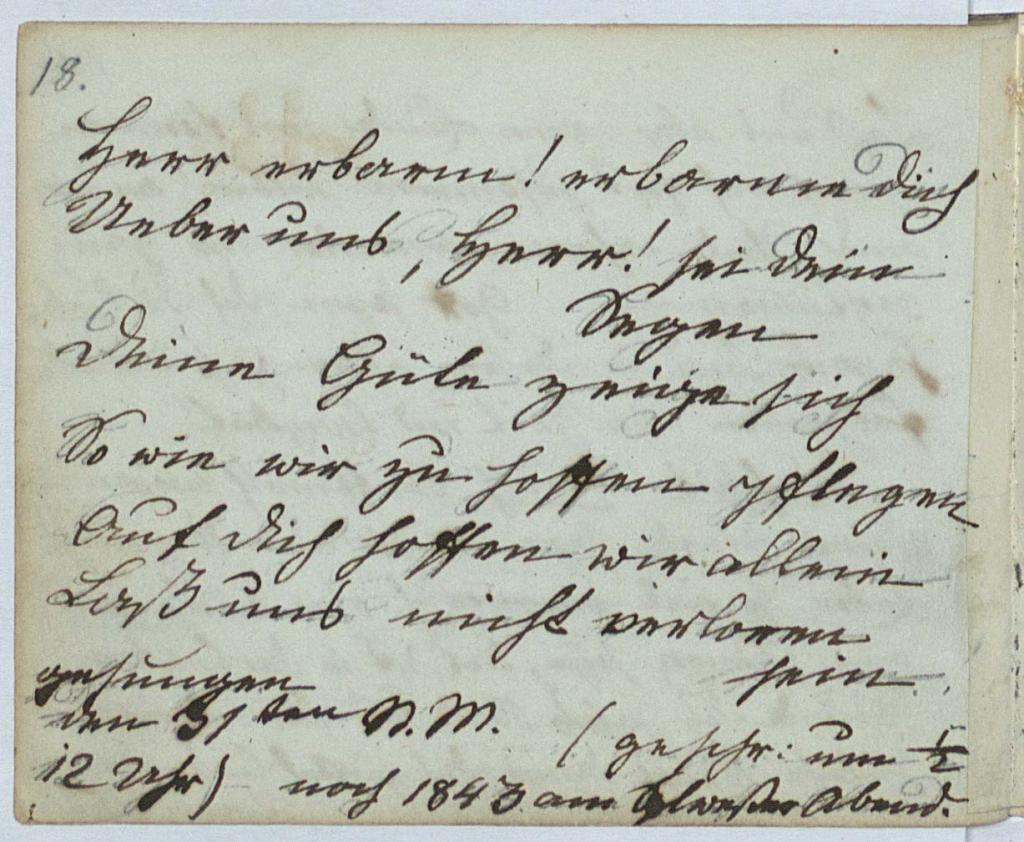 18.
Herr erbarm! erbarme dich
Ueber uns, Herr! sei dein
Segen
Deine Güte zeige sich
So wie wir zu hoffen pflegen
Auf dich hoffen wir allein
Laß uns nicht verloren
sein.
gesungen
den 31ten
(geschr: um 1/2
12 Uhr) noch 1843 am Sylvester Abend.